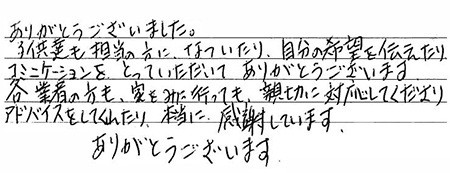 ありがとうございました。
子供達も担当の方に、なついたり、自分の希望を伝えたり
コミニケーションを、とっていただいて ありがとうございます
各業者の方も、家をみに行っても、親切に対応してくださり
アドバイスをしてくれたり、本当に、感謝しています。
ありがとうございます。